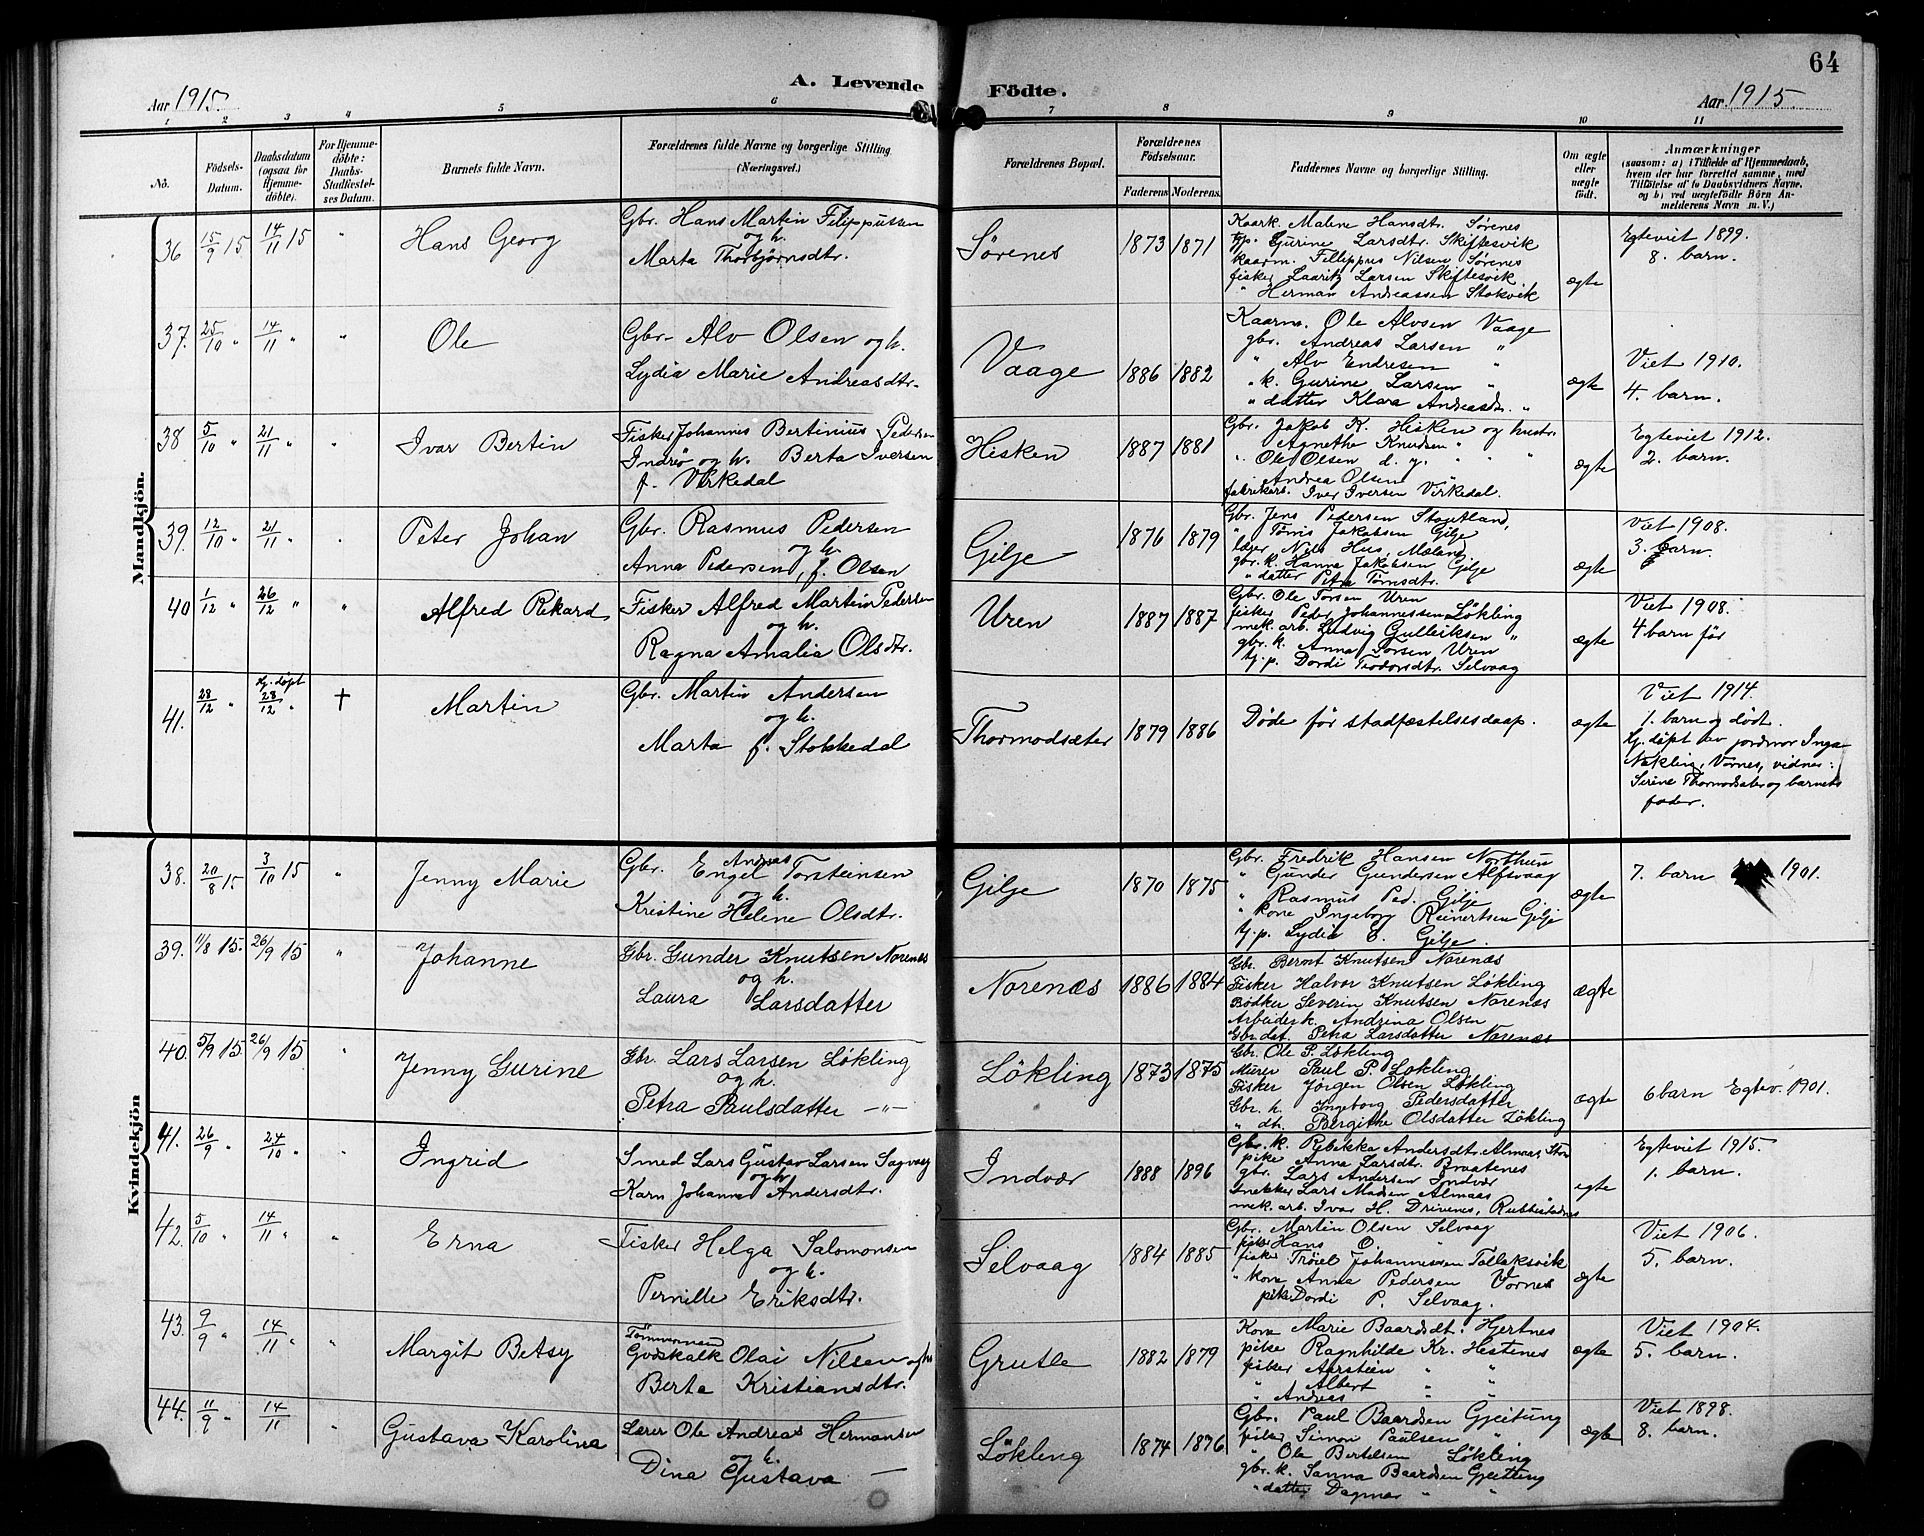 64
A. Levende Födte.
Aar 1915.
Aar 1915.
1 2 3 4 5 6 7 8 9 10 11
No.
Födsels-Datum.
Daabsdatum (ogsaa for Hjemmedöbte).
For Hjemmedöbte: Daabs-Stadfæstelses Datum.
Barnets fulde Navn.
Forældrenes fulde Navne og borgerlige Stilling. (Næringsvei.)
Forældrenes Bopæl.
Forældrenes Födselsaar.
Faderens. Moderens.
Faddernes Navne og borgerlige Stilling.
Om ægte eller uægte født.
Anmærkninger
(saasom: a) i Tilfælde af Hjemmedaab, hvem der har forrettet samme, med Tilföielse af to Daabsvidners Navne, og b) ved uægtefödte Börn Anmelderens Navn m. V.)
Mandkjön.
36 15/9 15 14/11 15 " Hans Georg
Gbr. Hans Martin Filippussen
og h.
Marta Thorbjørnsdtr.
Sørenes 1873 1871
Kaark. Malene Hansdtr. Sørenes
tjp. Gurine Larsdtr. Skiftesvik
Kaarm. Fillippus Nilsen Sørenes
fisker Lauritz Larsen Skiftesvik
" Herman Andreassen Stokvik
ægte
Egteviet 1899.
8. barn.
37. 25/10 " 14/11 " " Ole
Gbr. Alv Olsen og h.
Lydia Marie Andreasdtr.
Vaage 1886 1882
Kaarm. Ole Alvsen Vaage
gbr. Andreas Larsen "
" Alv Endresen "
" k. Gurine Larsen "
" datter Klara Andreasdr. "
ægte
Viet 1910.
4. barn.
38 5/10 " 21/11 " " Ivar Bertin
Fisker Johannes Bertinius Pedersen
Indrø og h. Berta Iversen
f. Virkedal
Hisken 1887 1881
Gbr. Jakob K. Hisken og hustr.
Agnethe Knudsen "
" Ole Olsen d. y. " " "
Andrea Olsen
fabrikarb. Iver Iversen Virkedal.
ægte
Egteviet 1912.
2. barn.
39. 12/10 " 21/11 " " Peter Johan
Gbr. Rasmus Pedersen
og h.
Anna Pedersen, f. Olsen
Gilje 1876 1879
Gbr. Jens Pedersen
" Jakobsen Gilje
Nils Hus, Mæland
gbr. k. Hanna Jakobsen Gilje
" datter Petra
ægte
Viet 1908.
3. barn.
40 1/12 " 26/12 " " Alfred Rikard
Fisker Alfred Martin Pedersen
og h.
Ragna Amalia Olsdtr.
Uren 1887 1887
Gbr. Ole Torsen Uren
fisker Peder Johannessen Løkling
mek. arb. Ludvig Gulleiksen "
gbr. k. Anna Larsen Uren
tj. p. Dordi Teodorsdtr. Selvaag
ægte
Viet 1908.
4 barn før
41. 28/12 " Hj. døpt 28/12 " † Martin
Gbr. Martin Andersen
og h.
Marta f. Stokkedal
Thormodsæter 1879 1886
Døde før stadfæstelsesdaap.
ægte
Viet 1914.
1. barn og dødt.
Hj. døpt av jordmor Inga
Nekling, Vornes, vidner:
Serine Thormodsæter og barnets
fader.
Kvindekjön
38. 20/8 15 3/10 15 " Jenny Marie
Andreas
Gbr. Engel Torsteinsen
og h.
Kristine Helene Olsdtr.
Gilje 1870 1875
Gbr. Fredrik Hansen Northun
" Gunder Gundersen Alfsvaag
" Rasmus Ped. Gilje
" kone Ingeborg Reinertsen Gilje
tj. p. Lydia E. Gilje.
ægte
7. barn 1901.
39. 11/8 15. 26/9 15 " Johanne
Gbr. Gunder Knutsen Norenæs
og h.
Laura Larsdatter
Norenæs 1886 1884
Gbr. Berent Knutsen Norenæs
Fisker Halvor Knutsen Løkling
Bødker Severin Knutsen Norenæs
Arbeidersk. Andrina Olsen
Gbr. dat. Petra Larsdatter Norenæs
ægte
40. 5/9 15. 26/9 15 " Jenny Gurine
Gbr. Lars Larsen Løkling
og h.
Petra Paulsdatter —"—
Løkling 1873 1875
Gbr. Ole P. Løkling
Murer Paul P. Løkling
Fisker Jørgen Olsen Løkling
Gbr. h. Ingeborg Pedersdatter
" dt. Bergithe Olsdatter Løkling
ægte
6 barn Egtev. 1901.
41. 26/9 " 24/10 " Ingrid
Smed Lars Gustav Larsen Sagvaag
og h.
Karn Johanne Andersdtr.
Indvær 1888 1896
Gbr. k. Rebekka Andersdtr. Almaas, Stor
pike Anna Larsdtr. Braatenes
gbr. Lars Andersen Indvær
snekker Lars Madsen Almaas
mek. arb. Ivar H. Drivenes, Rubbestadnes
egte
Egteviet 1915.
1. barn.
42. 5/10 " 14/11 " " Erna
Fisker Helga Salomonsen
og h.
Pernille Eriksdtr.
Selvaag 1884 1885
Gbr. Martin Olsen Selvaag
fisker Hans O. "
fisker Trøiel Johannessen Tollaksvik
" kone Anna Pedersen Vornes
pike Dordi P. Selvaag.
ægte
Viet 1906.
5. barn.
43. 9/9 " 14/11 " " Margit Betsy
Tømmermen
Godskalk Olai Nilsen og hu
Berta Kristiansdtr.
Grutle 1882 1879
Kone Marie Baardsdt. Hjertnes
pike Ragnhilde Kr. Hestenes
fisker Aarstein " "
" Albert " "
" Andreas " "
ægte
Viet 1904.
5. barn.
44. 11/9 " 14/11 " Gustava Karolina
Lærer Ole Andreas Hermansen
og h.
Dina Gustava —
Løkling 1874 1876
Gbr. Paul Baardsen Gjeitung
fisker Simon Paulsen "
" Ole Bertelsen Løkling
gbr. k. Sanna Baardsen Gjeitung
" datter Dagmar " "
ægte
Viet 1898.
8. barn.